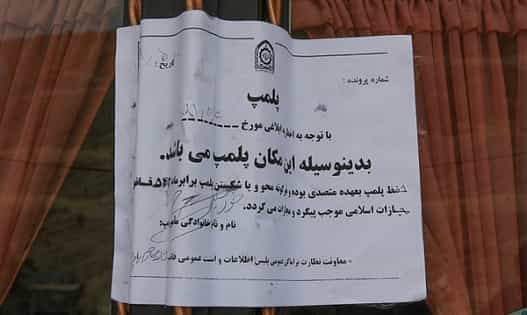 تاریخ:
شماره پرونده:
پلمپ
با توجه به ابلاغی مورخ
بدینوسیله این مکان پلمپ می باشد.
حفظ پلمپ بعهده متصدی بوده و هرگونه محو و یا شکستن پلمپ برابر ماده
مجازات اسلامی موجب پیگرد و مجازات می گردد.
نام و نام خانوادگی
معاونت نظارت بر اماکن عمومی پلیس اطلاعات و امنیت عمومی